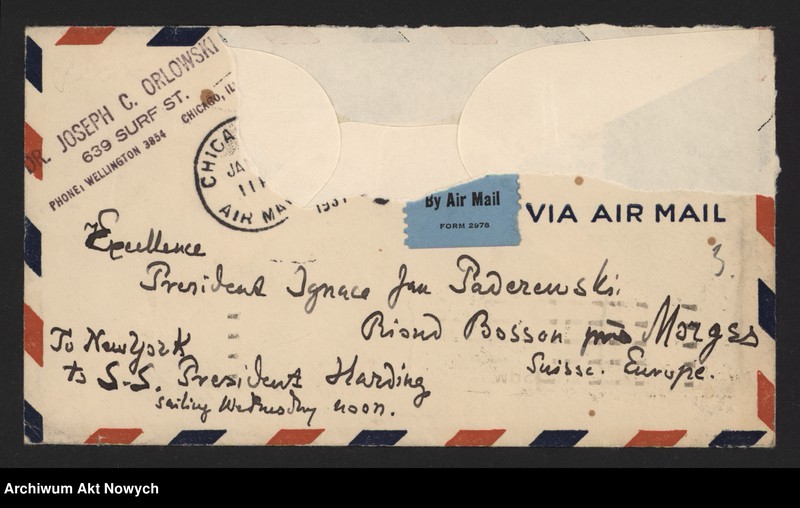 DR. JOSEPH C. ORLOWSKI
639 SURF ST.
PHONE: WELLINGTON 3854 CHICAGO, IL
CHICA
JA
11
AIR MA
193
By Air Mail
FORM 2978
VIA AIR MAIL
3.
Excellence
President Ignace Jan Paderewski
Riond Bosson près Morges
Suisse. Europe.
To New York
to S.S. President Harding
sailing Wednesday noon.
Archiwum Akt Nowych